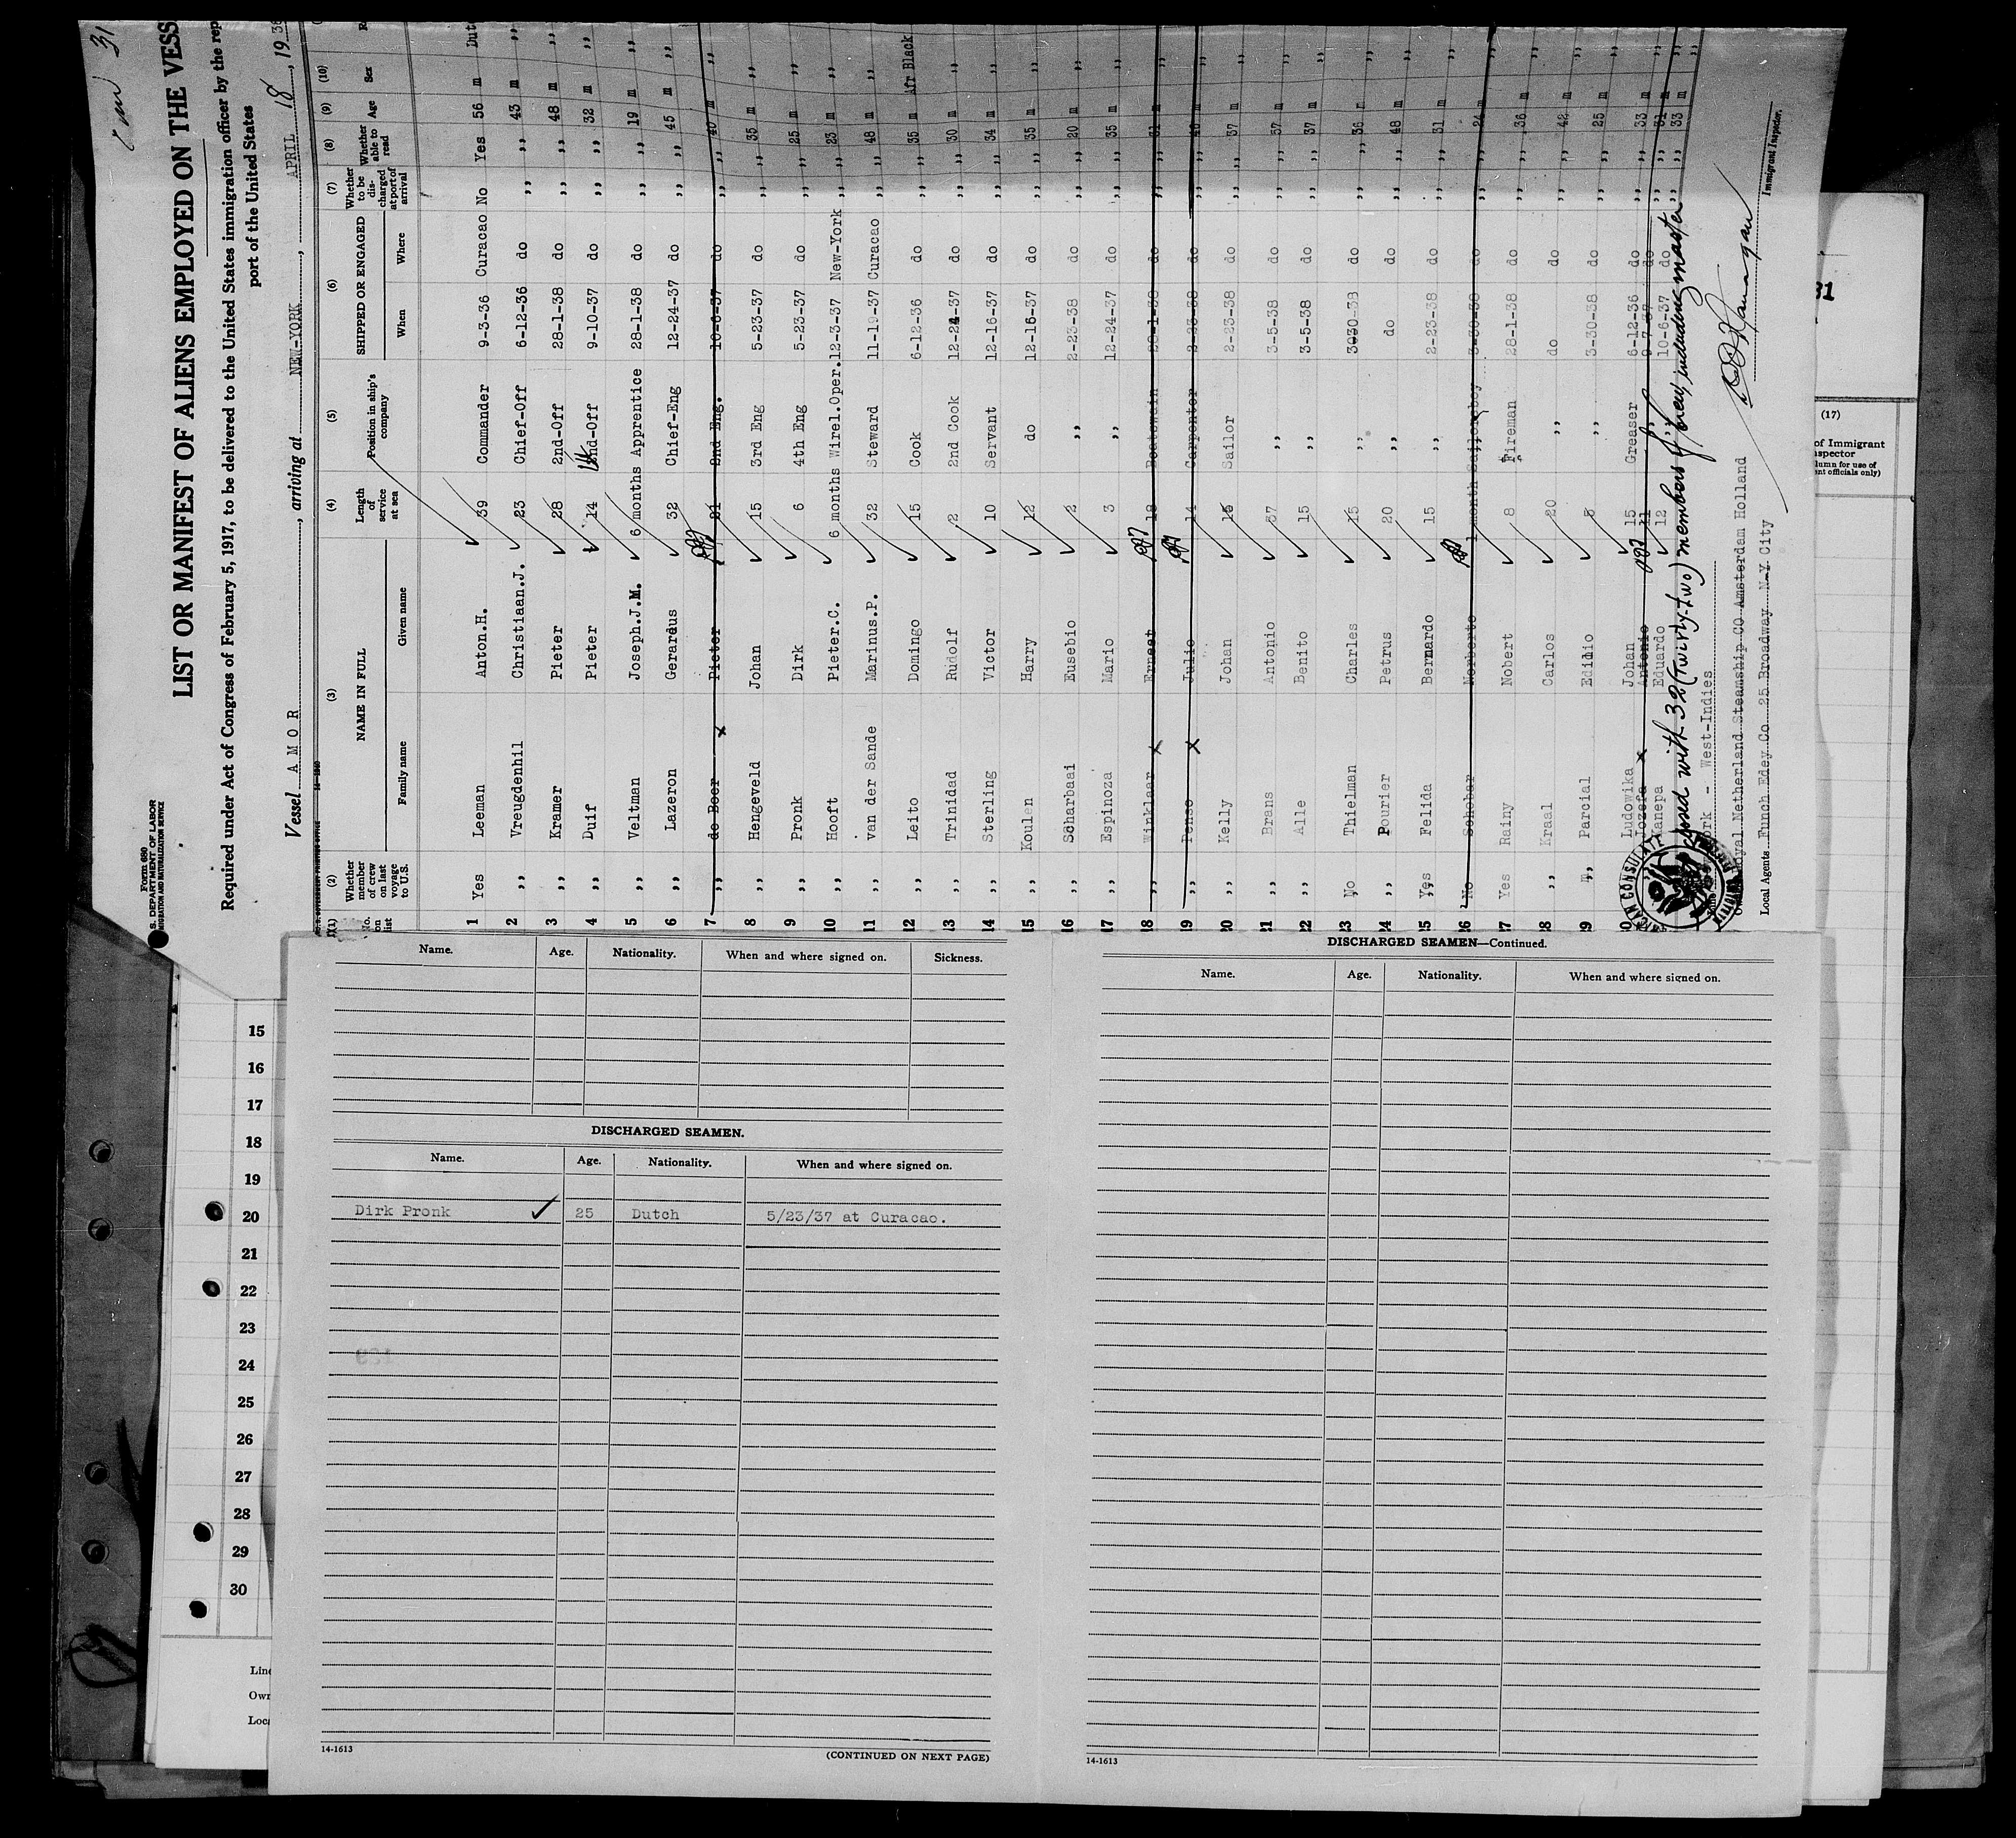 cum 31
Form 680
S. DEPARTMENT OF LABOR
IMMIGRATION AND NATURALIZATION SERVICE
LIST OR MANIFEST OF ALIENS EMPLOYED ON THE VESS
Required under Act of Congress of February 5, 1917, to be delivered to the United States immigration officer by the rep
port of the United States
Vessel AMOR, arriving at NEW-YORK, APRIL 18, 1938
(1) No. on list (2) Whether member of crew on last voyage to U.S. (3) NAME IN FULL Family name Given name (4) Length of service at sea (5) Position in ship's company (6) SHIPPED OR ENGAGED When Where (7) Whether to be discharged at port of arrival (8) Whether able to read (9) Age (10) Sex
1 Yes Leeman Anton.H. 39 Commander 9-3-36 Curacao No Yes 56 m Dut
2 ,, Vreugdenhil Christiaan.J. 23 Chief-Off 6-12-36 do ,, ,, 43 m ,,
3 ,, Kramer Pieter 28 2nd-Off 28-1-38 do ,, ,, 48 m ,,
4 ,, Duif Pieter 14 2nd-Off 9-10-37 do ,, ,, 32 m ,,
5 ,, Veltman Joseph.J.M. 6 months Apprentice 28-1-38 do ,, ,, 19 m ,,
6 ,, Lazeron Gerardus 32 Chief-Eng 12-24-37 do ,, ,, 45 m ,,
7 ,, de Boer Pieter 21 2nd Eng. 10-6-37 do ,, ,, 40 m ,,
8 ,, Hengeveld Johan 15 3rd Eng 5-23-37 do ,, ,, 35 m ,,
9 ,, Pronk Dirk 6 4th Eng 5-23-37 do ,, ,, 25 m ,,
10 ,, Hooft Pieter.C. 6 months Wirel.Oper. 12-3-37 New-York ,, ,, 23 m ,,
11 ,, van der Sande Marinus.P. 32 Steward 11-19-37 Curacao ,, ,, 48 m ,,
12 ,, Leito Domingo 15 Cook 6-12-36 do ,, ,, 35 m Afr Black
13 ,, Trinidad Rudolf 2 2nd Cook 12-24-37 do ,, ,, 30 m ,,
14 ,, Sterling Victor 10 Servant 12-16-37 do ,, ,, 34 m ,,
15 ,, Koulen Harry 12 do 12-16-37 do ,, ,, 35 m ,,
16 ,, Scharbaai Eusebio 2 ,, 2-23-38 do ,, ,, 20 m ,,
17 ,, Espinoza Mario 3 ,, 12-24-37 do ,, ,, 35 m ,,
18 ,, Winklaar Ernest 18 Boatswain 28-1-38 do ,, ,, 31 m ,,
19 ,, Penso Julio 14 Carpenter 2-23-38 do ,, ,, 46 m ,,
20 ,, Kelly Johan 15 Sailor 2-23-38 do ,, ,, 37 m ,,
21 ,, Brans Antonio 37 ,, 3-5-38 do ,, ,, 57 m ,,
22 ,, Alle Benito 15 ,, 3-5-38 do ,, ,, 37 m ,,
23 No Thielman Charles 15 ,, do ,, ,, 36 ,,
24 ,, Pourier Petrus 20 ,, do do ,, ,, 48 m ,,
25 Yes Felida Bernardo 15 ,, 2-23-38 do ,, ,, 31 m ,,
26 No Schobar Norberto 1 month Sailorsboy 3-30-38 do ,, ,, 24 m ,,
27 Yes Rainy Nobert 8 Fireman 28-1-38 do ,, ,, 36 m ,,
28 ,, Kraal Carlos 20 ,, do do ,, ,, 42 m ,,
29 ,, Parcial 5 ,, 3-30-38 do ,, ,, 25 m ,,
Ludowika Johan 15 Greaser 6-12-36 do ,, ,, 33 m ,,
Jozefa Antonio 11 ,, 9-7-37 do ,, ,, 31 m ,,
Kanepa Eduardo 12 ,, 10-6-37 do ,, ,, 33 m ,,
Closed with 32 (Twirty-two) members of crew, including master
York - West-Indies
Royal Netherland Steamship CO Amsterdam Holland
Local Agents Funch Edey Co 25 Broadway N.Y. City
Immigrant Inspector.
31
(17)
of Immigrant
Inspector
15
16
17
18
19
20
21
22
23
24
25
26
27
28
29
30
Line
Own
Loca
Name. Age. Nationality. When and where signed on. Sickness.
DISCHARGED SEAMEN.
Name. Age. Nationality. When and where signed on.
Dirk Pronk 25 Dutch 5/23/37 at Curacao.
14-1613 (CONTINUED ON NEXT PAGE)
DISCHARGED SEAMEN—Continued.
Name. Age. Nationality. When and where signed on.
14-1613